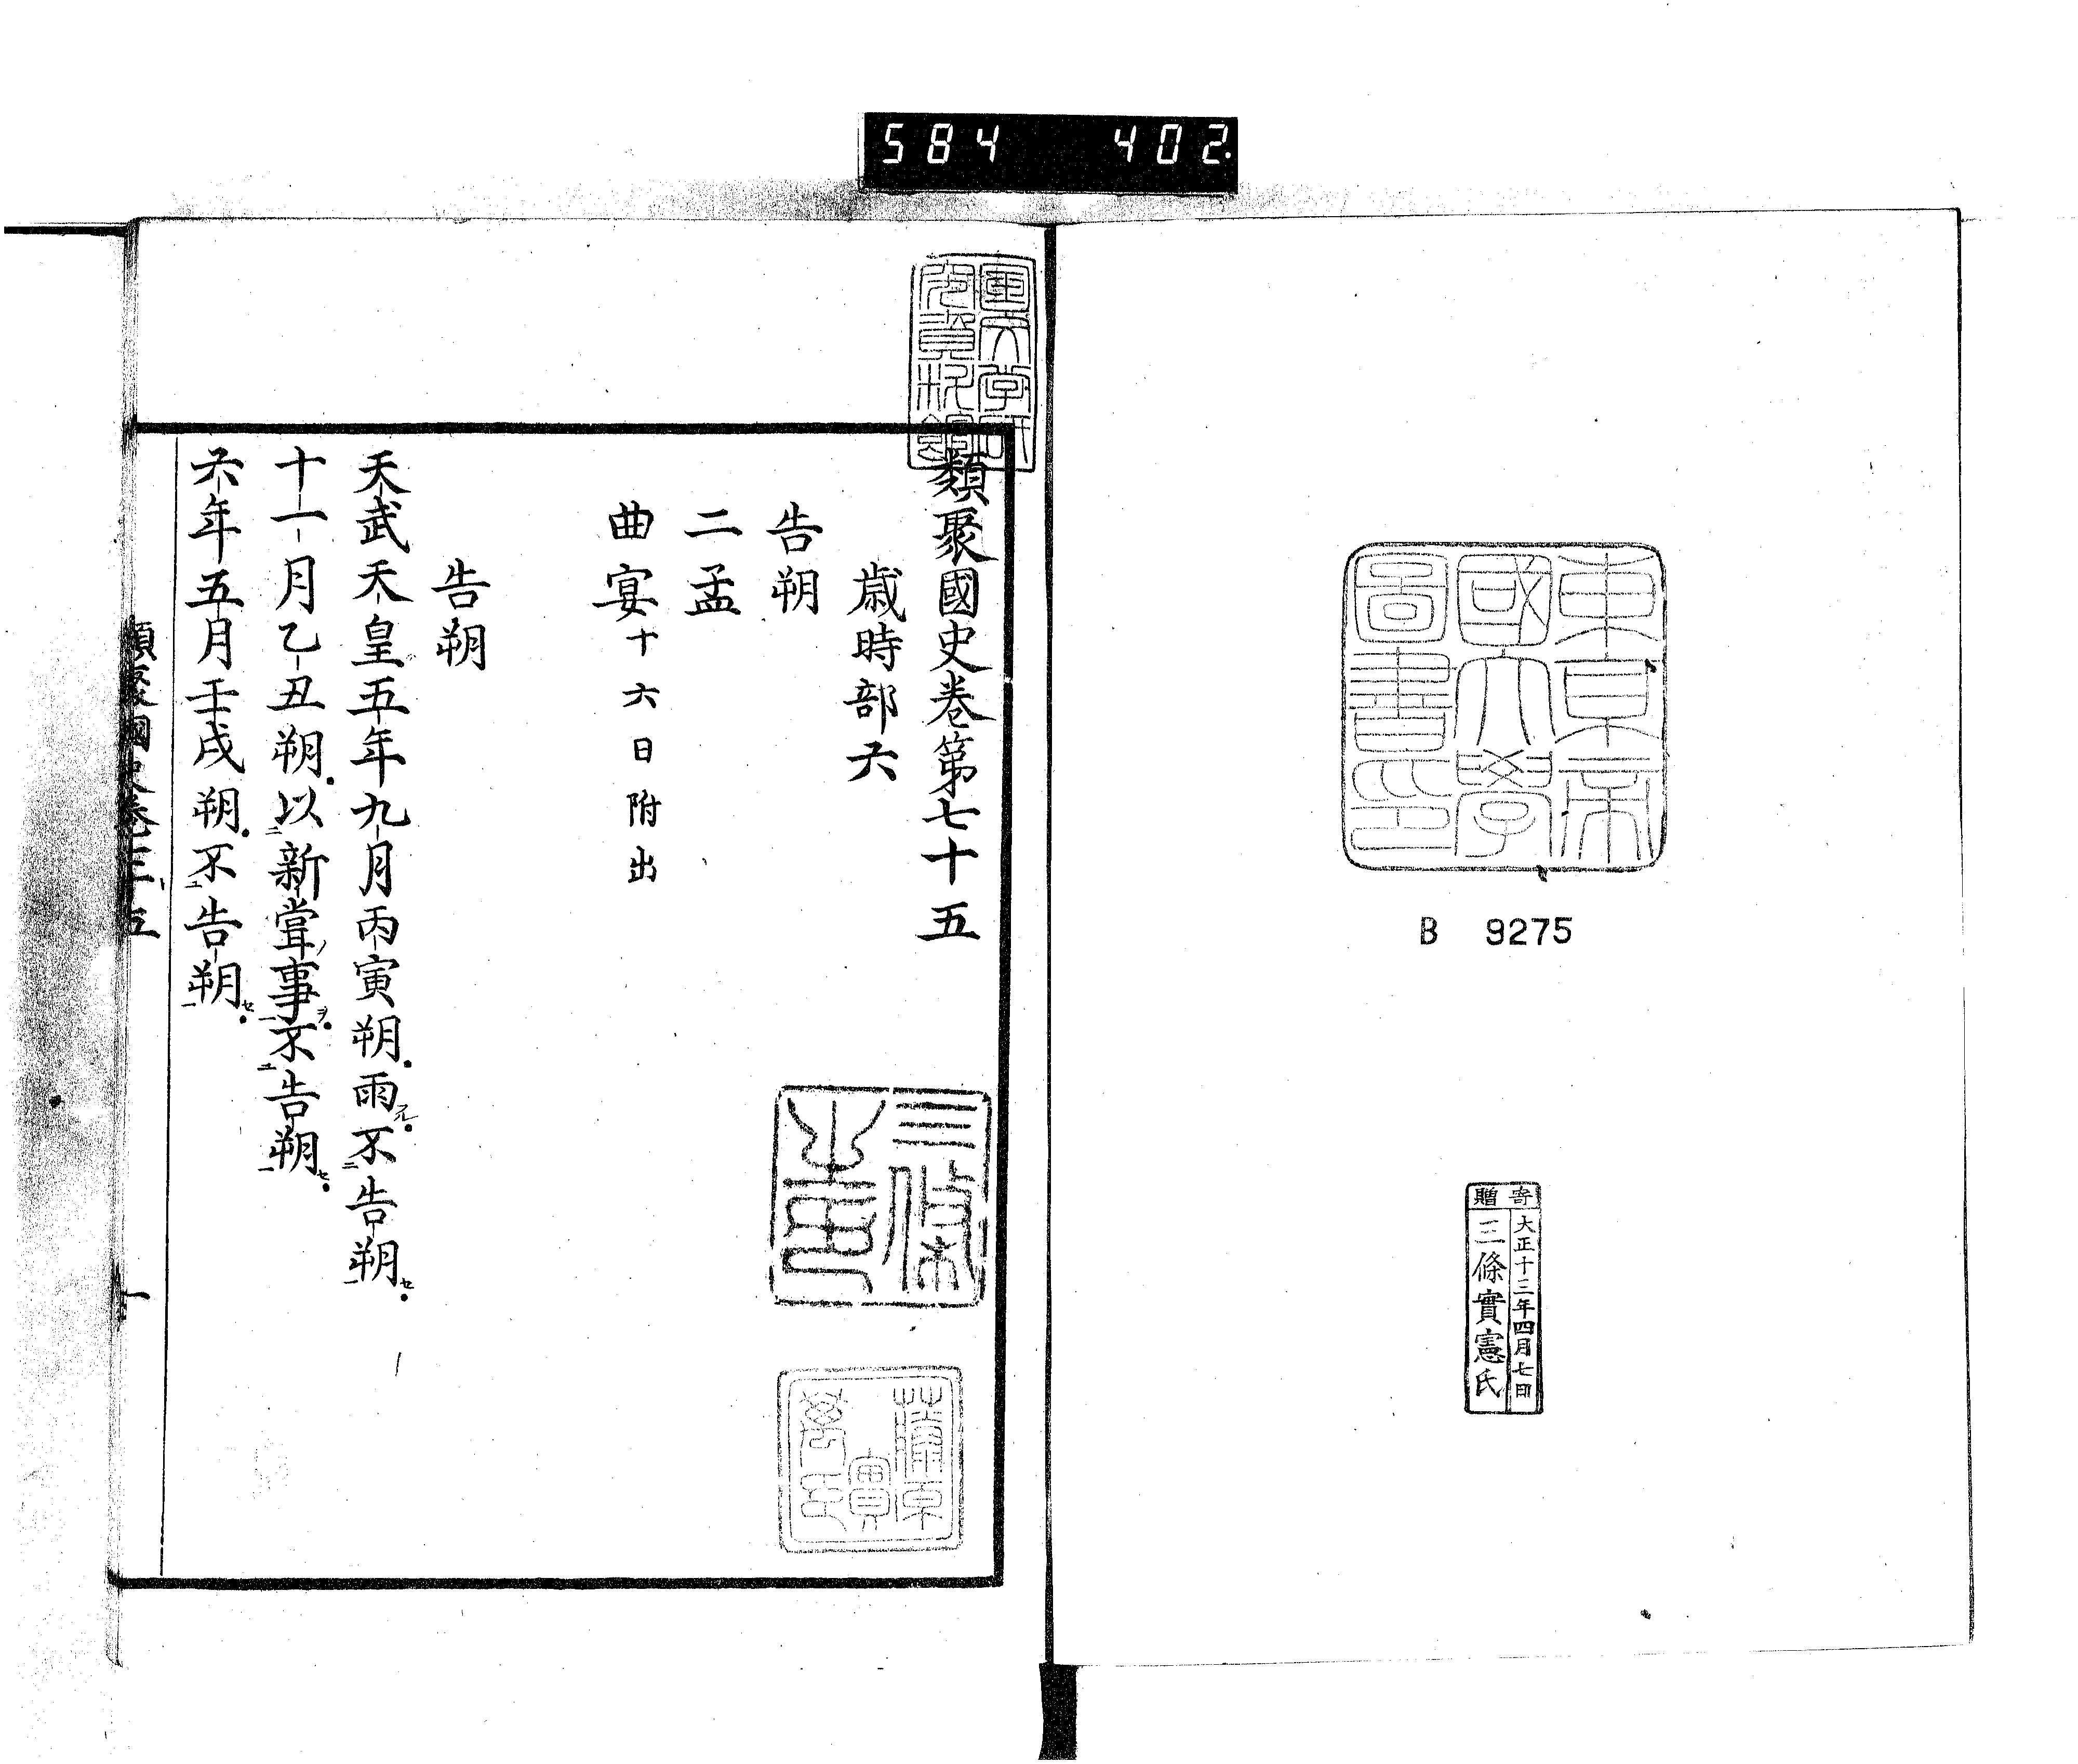 584 402
東京帝
國大學
圖書印
B 9275
寄贈
大正十三年四月七日
三條實憲氏
類聚國史卷第七十五
歳時部六
告朔
二孟
曲宴十六日附出
告朔
天武天皇五年九月丙寅朔雨フル不二告朔一セ
十一月乙丑朔以二新甞ノ事一ヲ不二告朔一セ
六年五月壬戌朔不二告朔一セ
三條
藤原
實
萬
類聚國史卷七十五
一